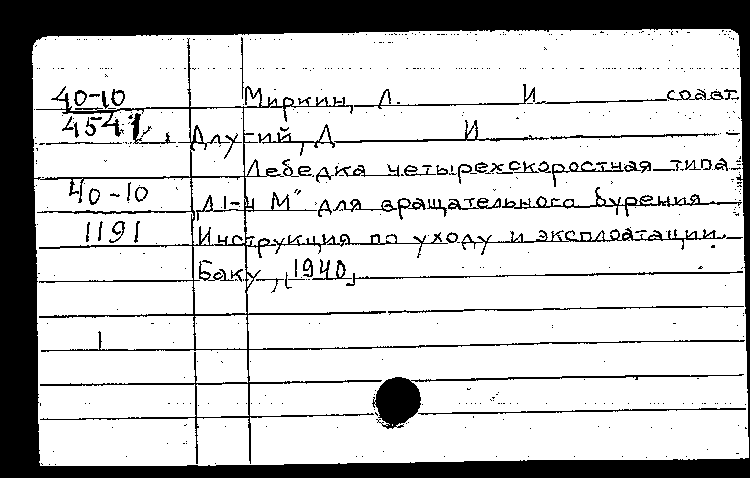 40-10 Миркин, Л. И соавт
4541 Длугий, Д И
Лебедка четырехскоростная типа
40-10 „Л1-4 М" для вращательного бурения.
1191 Инструкция по уходу и эксплоатации.
Баку, [1940]
1